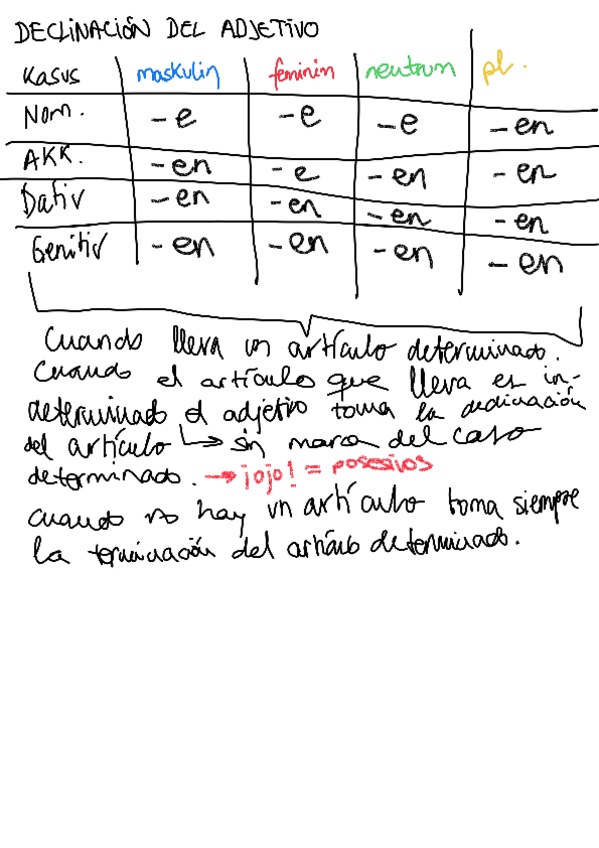 DECLINACIÓN DEL ADJETIVO
Kasus maskulin feminin neutrum pl.
Nom. -e -e -e -en
AKK. -en -e -en -en
Dativ -en -en -en -en
Genitiv -en -en -en -en
Cuando lleva un artículo determinado.
Cuando el artículo que lleva es in-
determinado el adjetivo toma la declinación
del artículo → sin marca del caso
determinado. → ¡ojo! = posesivos
Cuando no hay un artículo toma siempre
la terminación del artículo determinado.